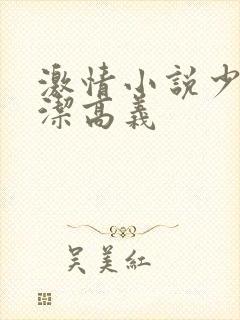 激情小説少
潔高義
吴美紅